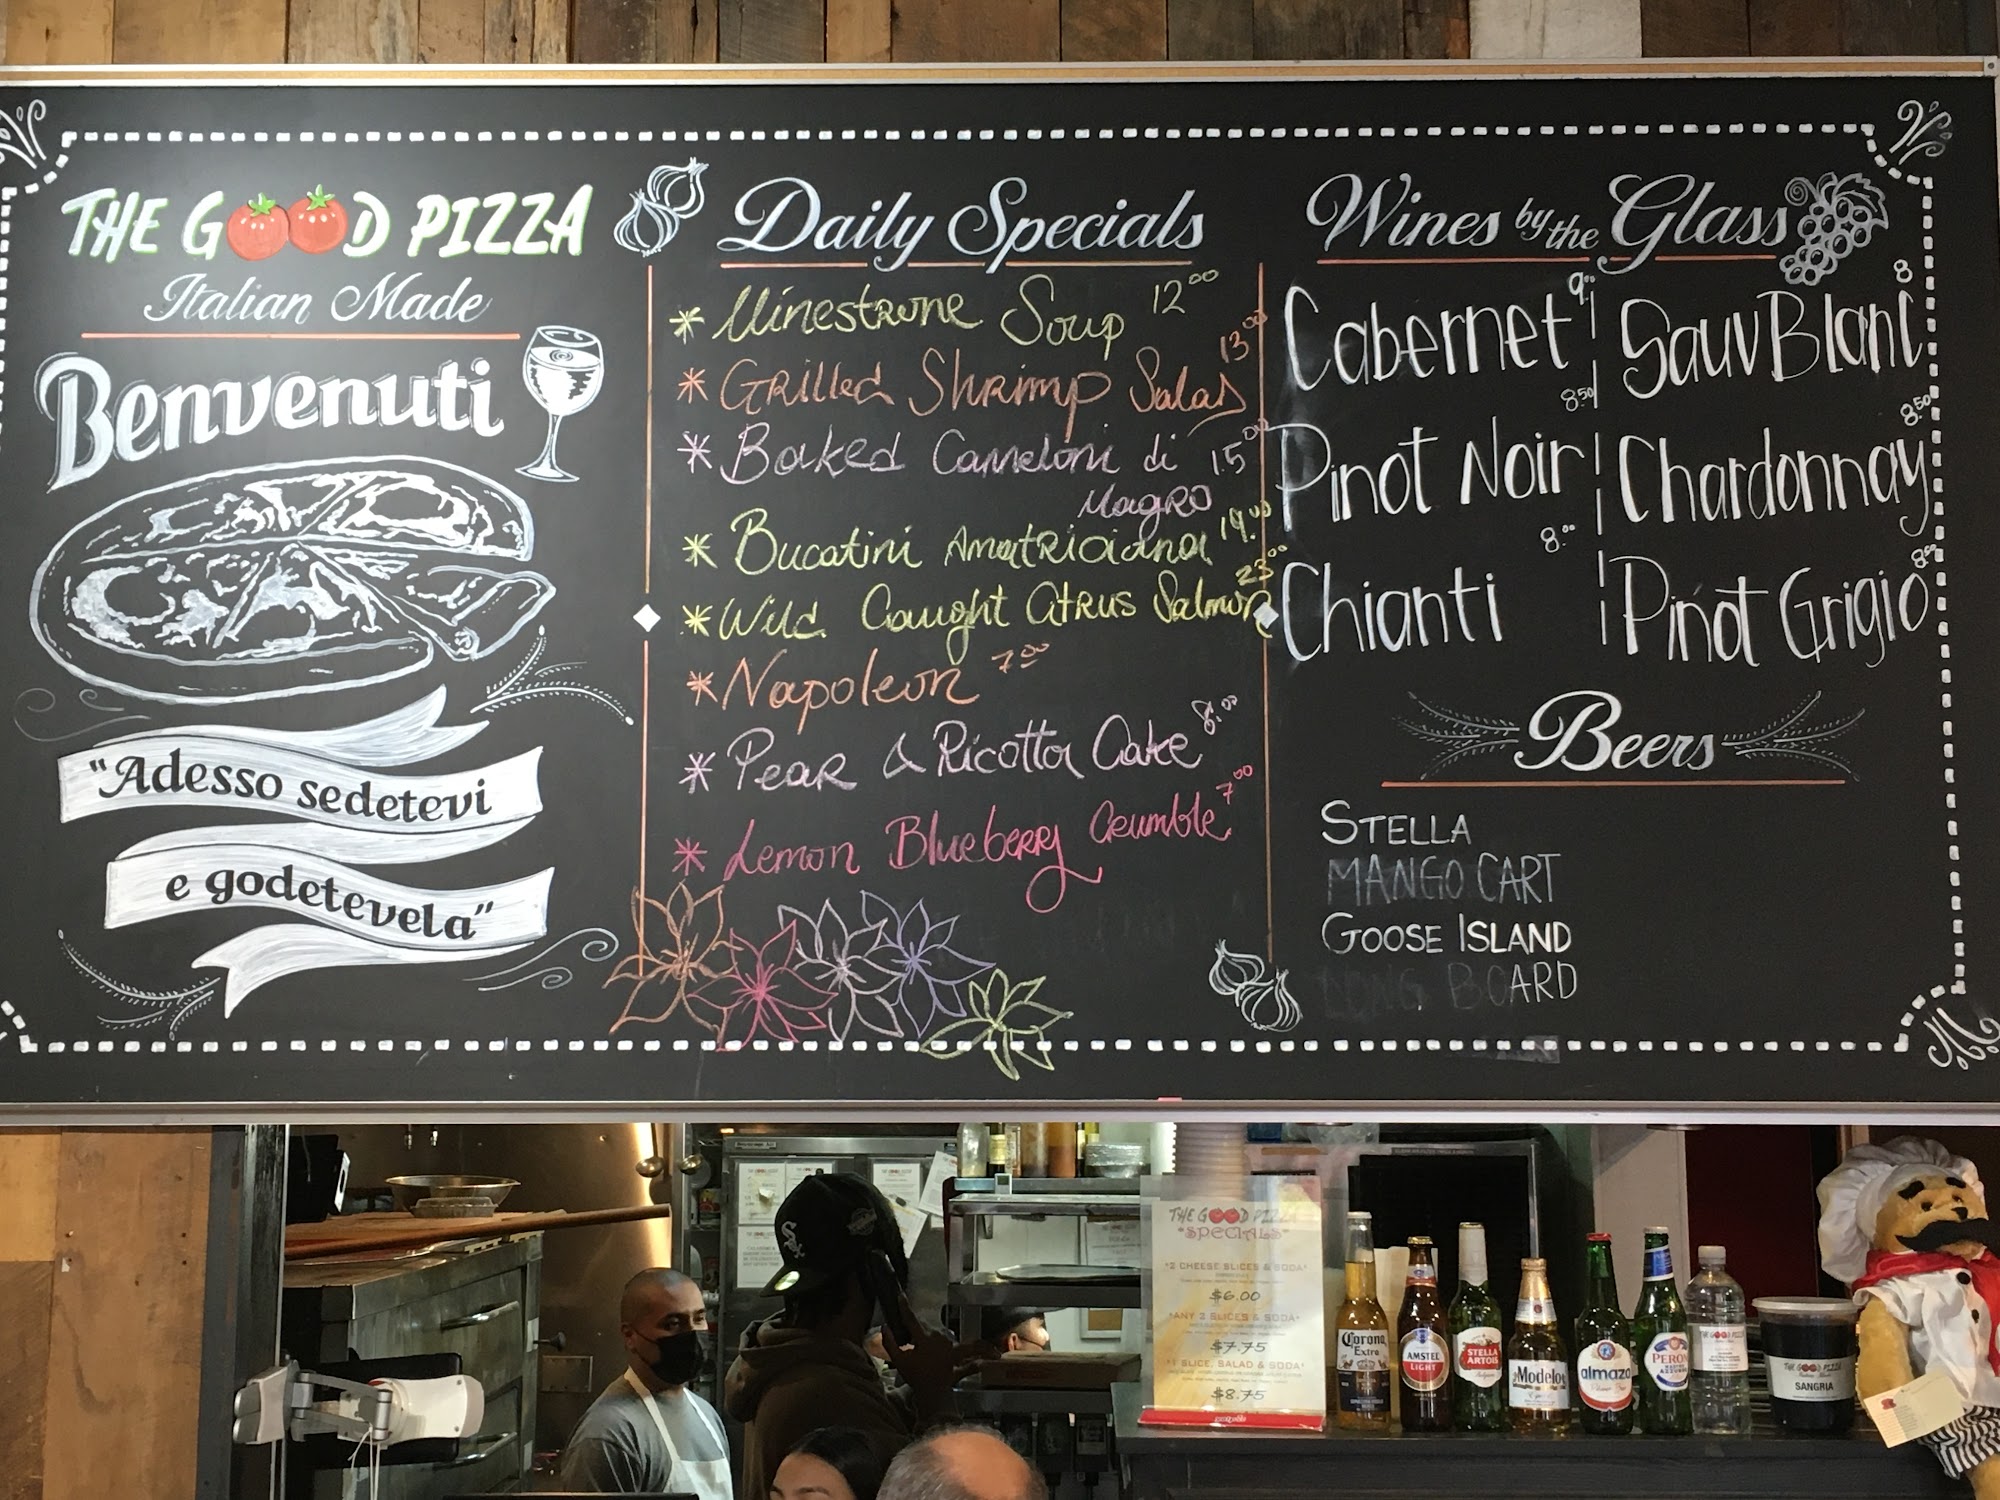 THE GOOD PIZZA
Italian Made
Benvenuti
"Adesso sedetevi
e godetevela"
Daily Specials
* Minestrone Soup 12.00
* Grilled Shrimp Salad 13.00
* Baked Canneloni di 15.00
Magro
* Bucatini Amatriciana 19.00
* Wild Caught Citrus Salmon 23.00
* Napoleon 7.00
* Pear & Ricotta Cake 8.00
* Lemon Blueberry Crumble 7.00
Wines by the Glass
Cabernet 9.00
Sauv Blanc 8
Pinot Noir 8.50
Chardonnay 8.50
Chianti 8.00
Pinot Grigio 8.00
Beers
STELLA
MANGO CART
GOOSE ISLAND
LONG BOARD
THE GOOD PIZZA
"SPECIALS"
"2 CHEESE SLICES & SODA"
$6.00
"ANY 2 SLICES & SODA"
$7.75
"1 SLICE, SALAD & SODA"
$8.75
Corona
Extra
AMSTEL
LIGHT
STELLA
ARTOIS
Modelo
almaza
PERONI
THE GOOD PIZZA
THE GOOD PIZZA
SANGRIA
Sox